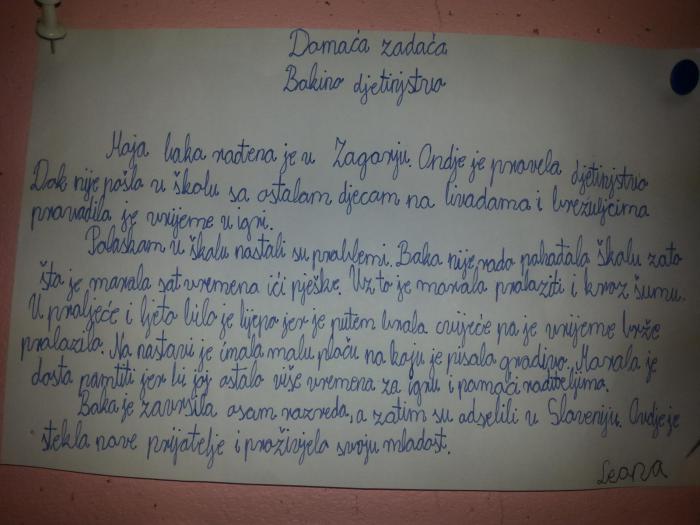 Domaća zadaća
Bakino djetinjstvo
Moja baka rođena je u Zagorju. Ondje je provela djetinjstvo
Dok nije pošla u školu sa ostalom djecom na livadama i brežuljcima
provodila je vrijeme u igri.
Polaskom u školu nastali su problemi. Baka nije rado pohađala školu zato
što je morala sat vremena ići pješke. Uz to je morala prolaziti i kroz šumu.
U proljeće i ljeto bilo je lijepo jer je putem brala cvijeće pa je vrijeme brže
prolazilo. Na nastavi je imala malu ploču na koju je pisala gradivo. Morala je
dosta pamtiti jer bi joj ostalo više vremena za igru i pomaći roditeljima.
Baka je završila osam razreda, a zatim su odselili u Sloveniju. Ondje je
stekla nove prijatelje i proživjela svoju mladost.
Leona